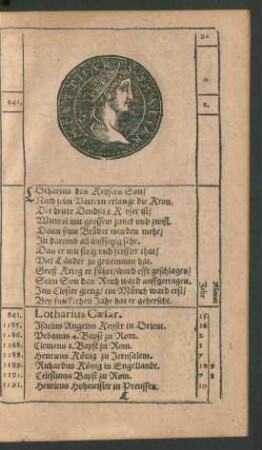 92
841.
LOtharius des Keysers Son/
Nach seim Vattern erlangt die Kron.
Der dritte Deudsche Keyser ist/
Wiewol mit grossem zanck vnd zwist.
Dann seine Brüder wurden mehr/
In darumb all auffsetzig sehr.
Das er mit streit vnd freffler that/
Viel Länder zu genommen hat.
Groß Krieg er führt/ ward offt geschlagen/
Seim Son das Reich ward auffgetragen.
Ins Closter gieng/ ein Münch ward erst/
Bey funfftzehen Jahr hat er geherrscht.
Jahr
Monat
841. Lotharius Cæsar. 15
1185. Isacius Angelus Keyser in Orient.
1186. Vrbanus 4. Bapst zu Rom.
1188. Clemens 2. Bapst zu Rom.
1188. Henricus König zu Jerusalem. 7
1189. Richardus König in Engellandt.
1191. Celestinus Bapst zu Rom. 7
1191. Henricus Hohmeister in Preussen. 10